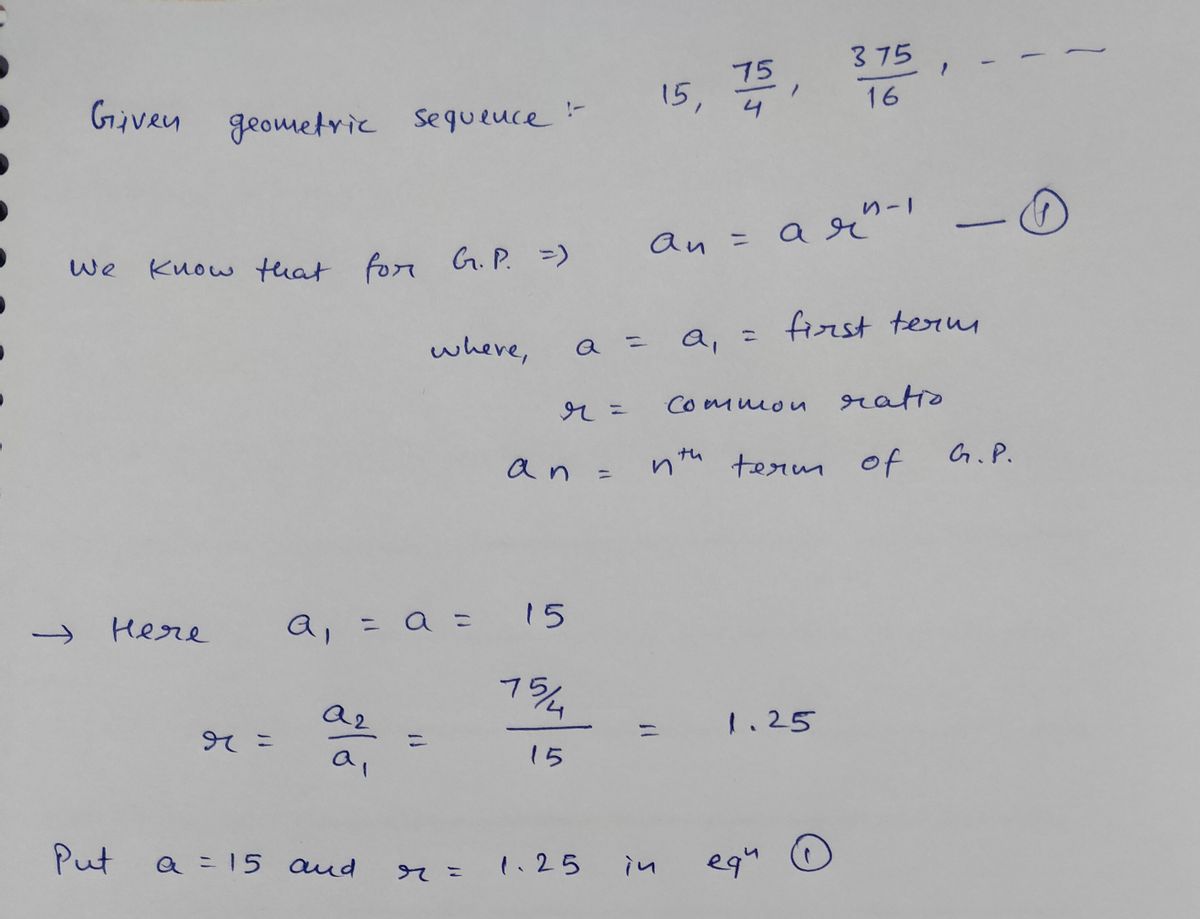 Given geometric sequence :- 15, 75/4, 375/16, - - -
We know that for G.P. => an = a r^n-1 — ①
where, a = a₁ = first term
r = common ratio
an = nth term of G.P.
→ Here a₁ = a = 15
r = a₂/a₁ = 75/4 / 15 = 1.25
Put a = 15 and r = 1.25 in eqn ①